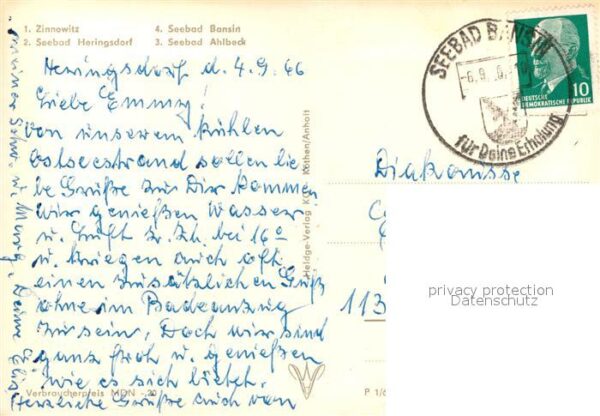 1. Zinnowitz 4. Seebad Bansin
2. Seebad Heringsdorf 3. Seebad Ahlbeck
Heringsdorf d. 4.9.66
Liebe Emmy!
Von unserem kühlen
Ostseestrand sollen lie
be Grüße zu Dir kommen
wir genießen Wasser
u. Luft z. Zt. bei 16°
u. kriegen auch oft
einen zusätzlichen Guß
ohne im Badeanzug
zu sein, Doch wir sind
ganz froh u. genießen
wie es sich bietet.
Herzliche Grüße auch von
meiner u. Deine
Verbraucherpreis MDN -,20
Heldge-Verlag KG, Köthen/Anhalt
SEEBAD BANSIN
-6.9.
für Deine Erholung
10
DEUTSCHE
DEMOKRATISCHE REPUBLIK
Diakonisse
113
privacy protection
Datenschutz
P 1/6